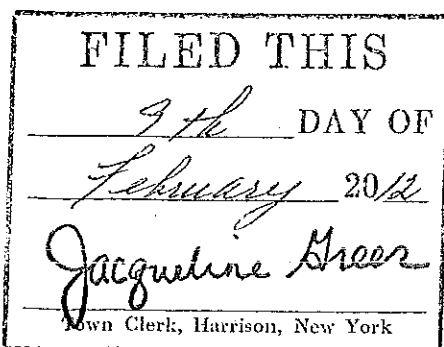 FILED THIS
9th DAY OF
February 2012
Jacqueline Greer
Town Clerk, Harrison, New York